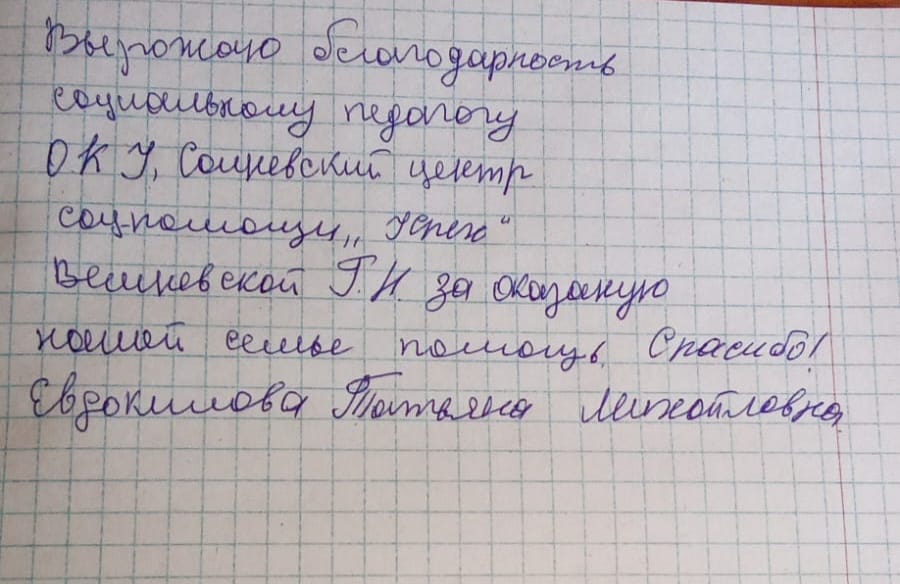 Выражаю благодарность
социальному педагогу
ОКУ, Солнцевский центр
соц.помощи „Успех“
Вишневской Г.Н. за оказаную
нашей семье помощь. Спасибо!
Евдокимова Татьяна Михайловна